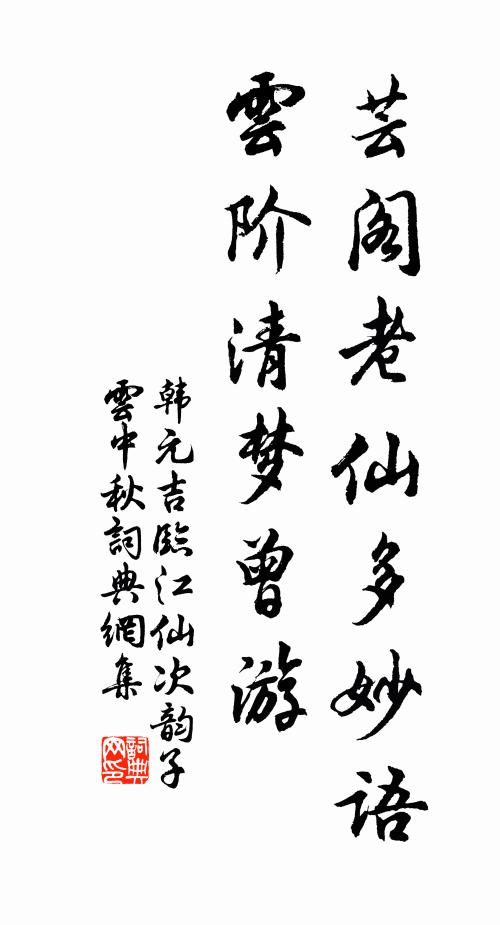 芸阁老仙多妙语
雲阶清梦曾游
韩元吉臨江仙次韵子
雲中秋詞典網集
詞典网印